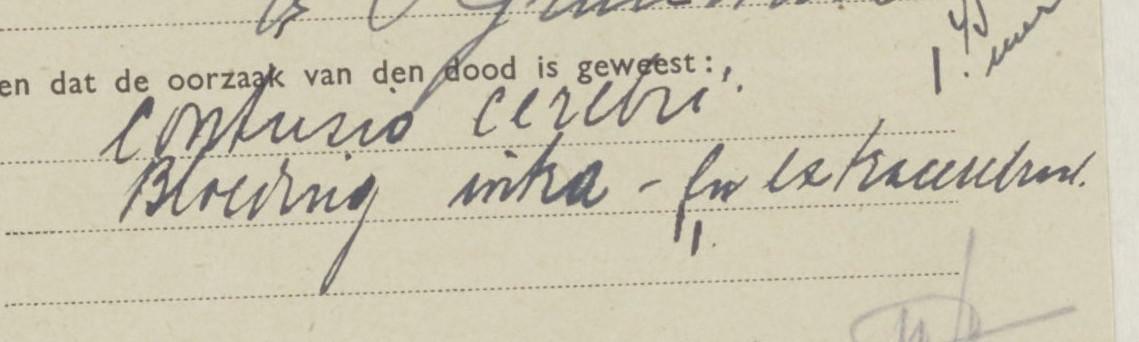 en dat de oorzaak van den dood is geweest:
contusio cerebri.
Bloeding intra - en extracerebraal.